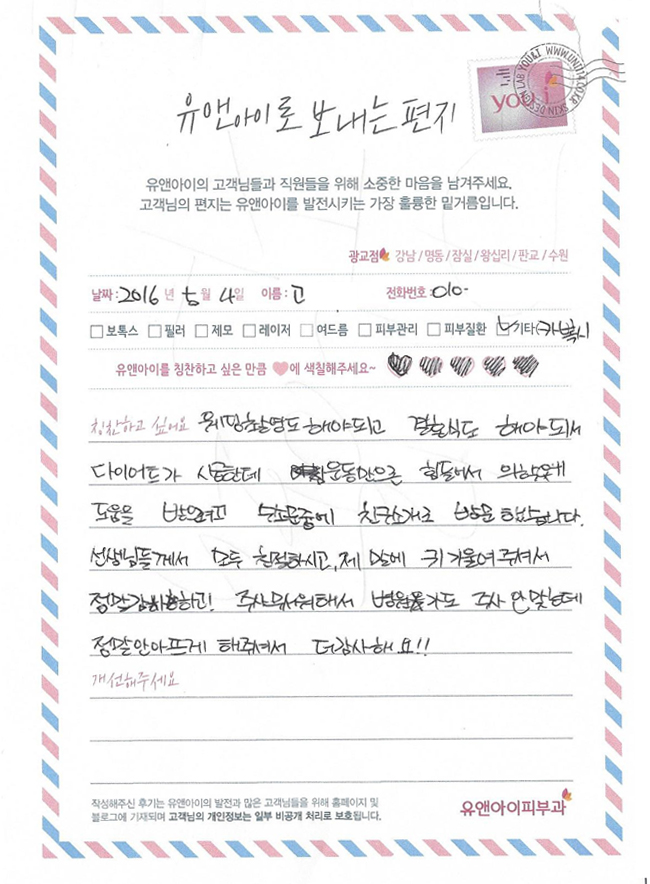 유앤아이로 보내는 편지
you&i
SKIN DESIGN LAB YOU&I WWW.UNI114.CO.KR
유앤아이의 고객님들과 직원들을 위해 소중한 마음을 남겨주세요.
고객님의 편지는 유앤아이를 발전시키는 가장 훌륭한 밑거름입니다.
광교점 강남 / 명동 / 잠실 / 왕십리 / 판교 / 수원
날짜 : 2016 년 5월 4일 이름 : 고 전화번호 : 010-
보톡스 필러 제모 레이저 여드름 피부관리 피부질환 기타(카복시
유앤아이를 칭찬하고 싶은 만큼 에 색칠해주세요~
칭찬하고 싶어요 웨딩촬영도 해야되고 결혼식도 해야되서
다이어트가 시급한데 운동만으론 힘들어서 의학적에
도움을 받으려고 수소문중에 친구소개로 방문했습니다.
선생님들께서 모두 친절하시고, 제 말에 귀 기울여주셔서
정말감사하고! 주사무서워해서 병원가도 주사 안맞는데
정말안아프게 해주셔서 더감사해요!!
개선해주세요
작성해주신 후기는 유앤아이의 발전과 많은 고객님들을 위해 홈페이지 및
블로그에 기재되며 고객님의 개인정보는 일부 비공개 처리로 보호됩니다.
유앤아이피부과